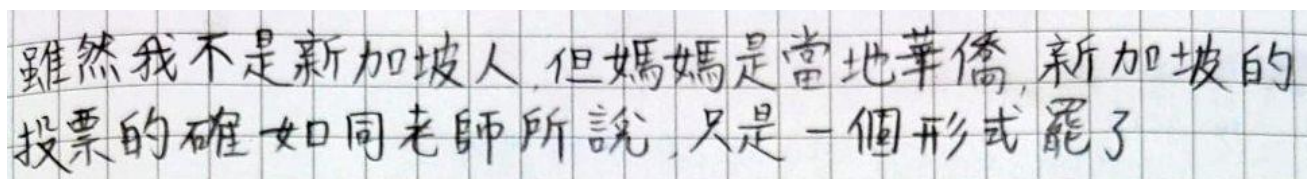 雖然我不是新加坡人,但媽媽是當地華僑,新加坡的
投票的確如同老師所說,只是一個形式罷了